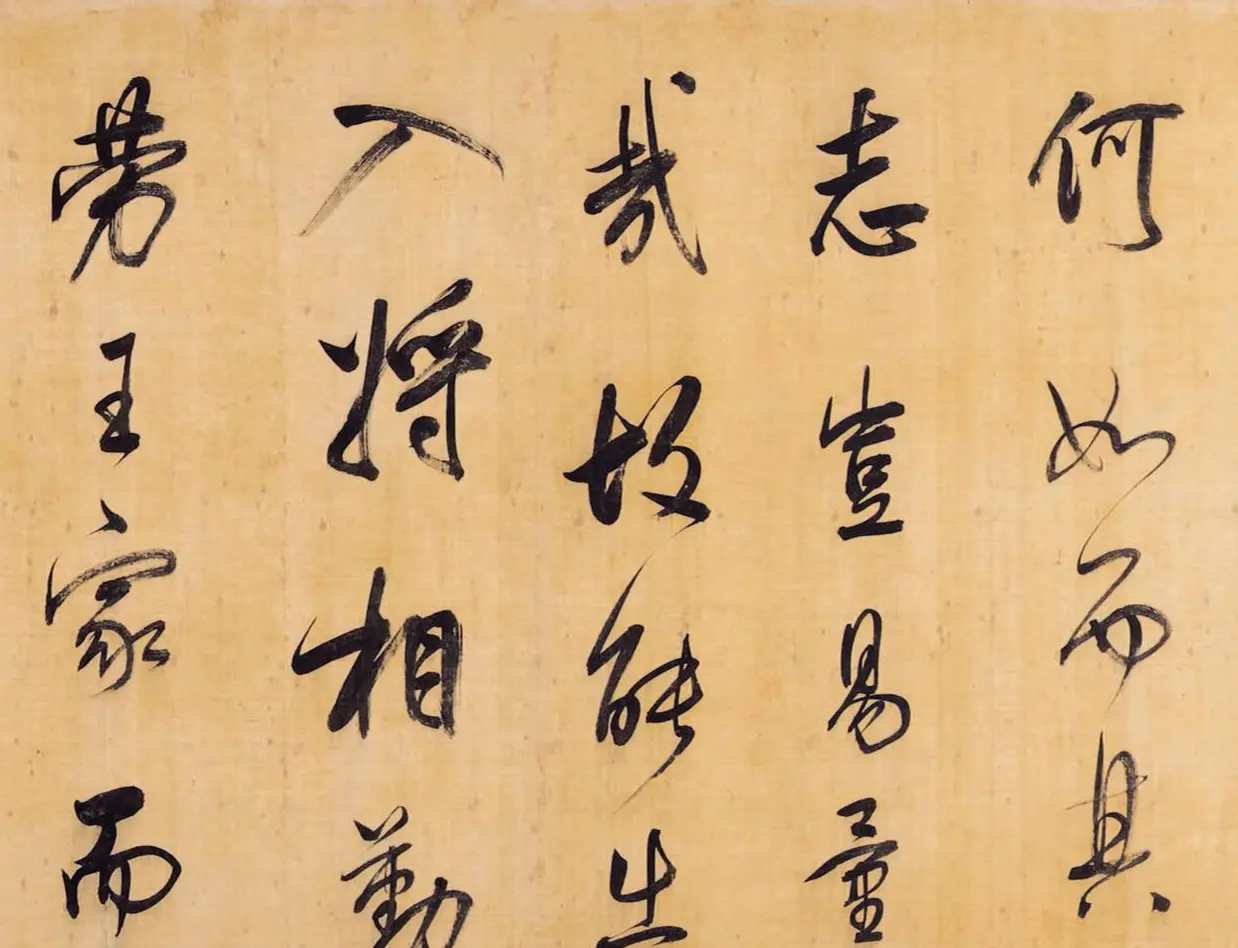 何如而其
志豈易量
哉故能出
入將相勤
勞王家而